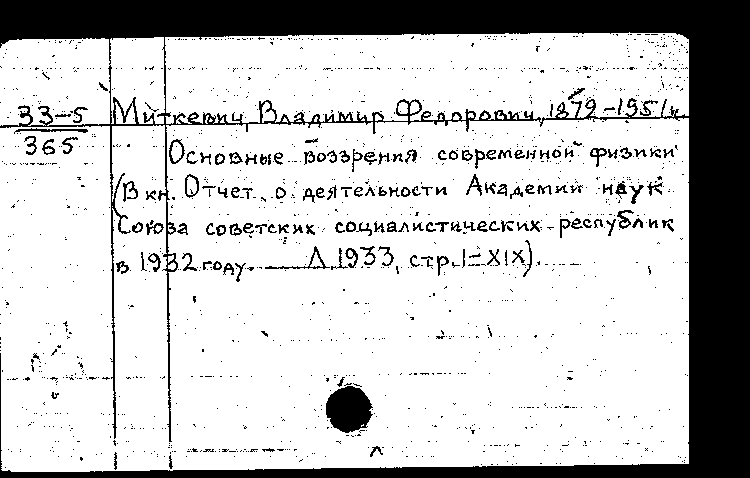 33-5
365
Миткевич, Владимир Федорович, 1872-1951
Основные воззрения современной физики
(В кн. Отчет о деятельности Академии наук
Союза советских социалистических республик
в 1932 году. — Л. 1933, стр. I-XIX).